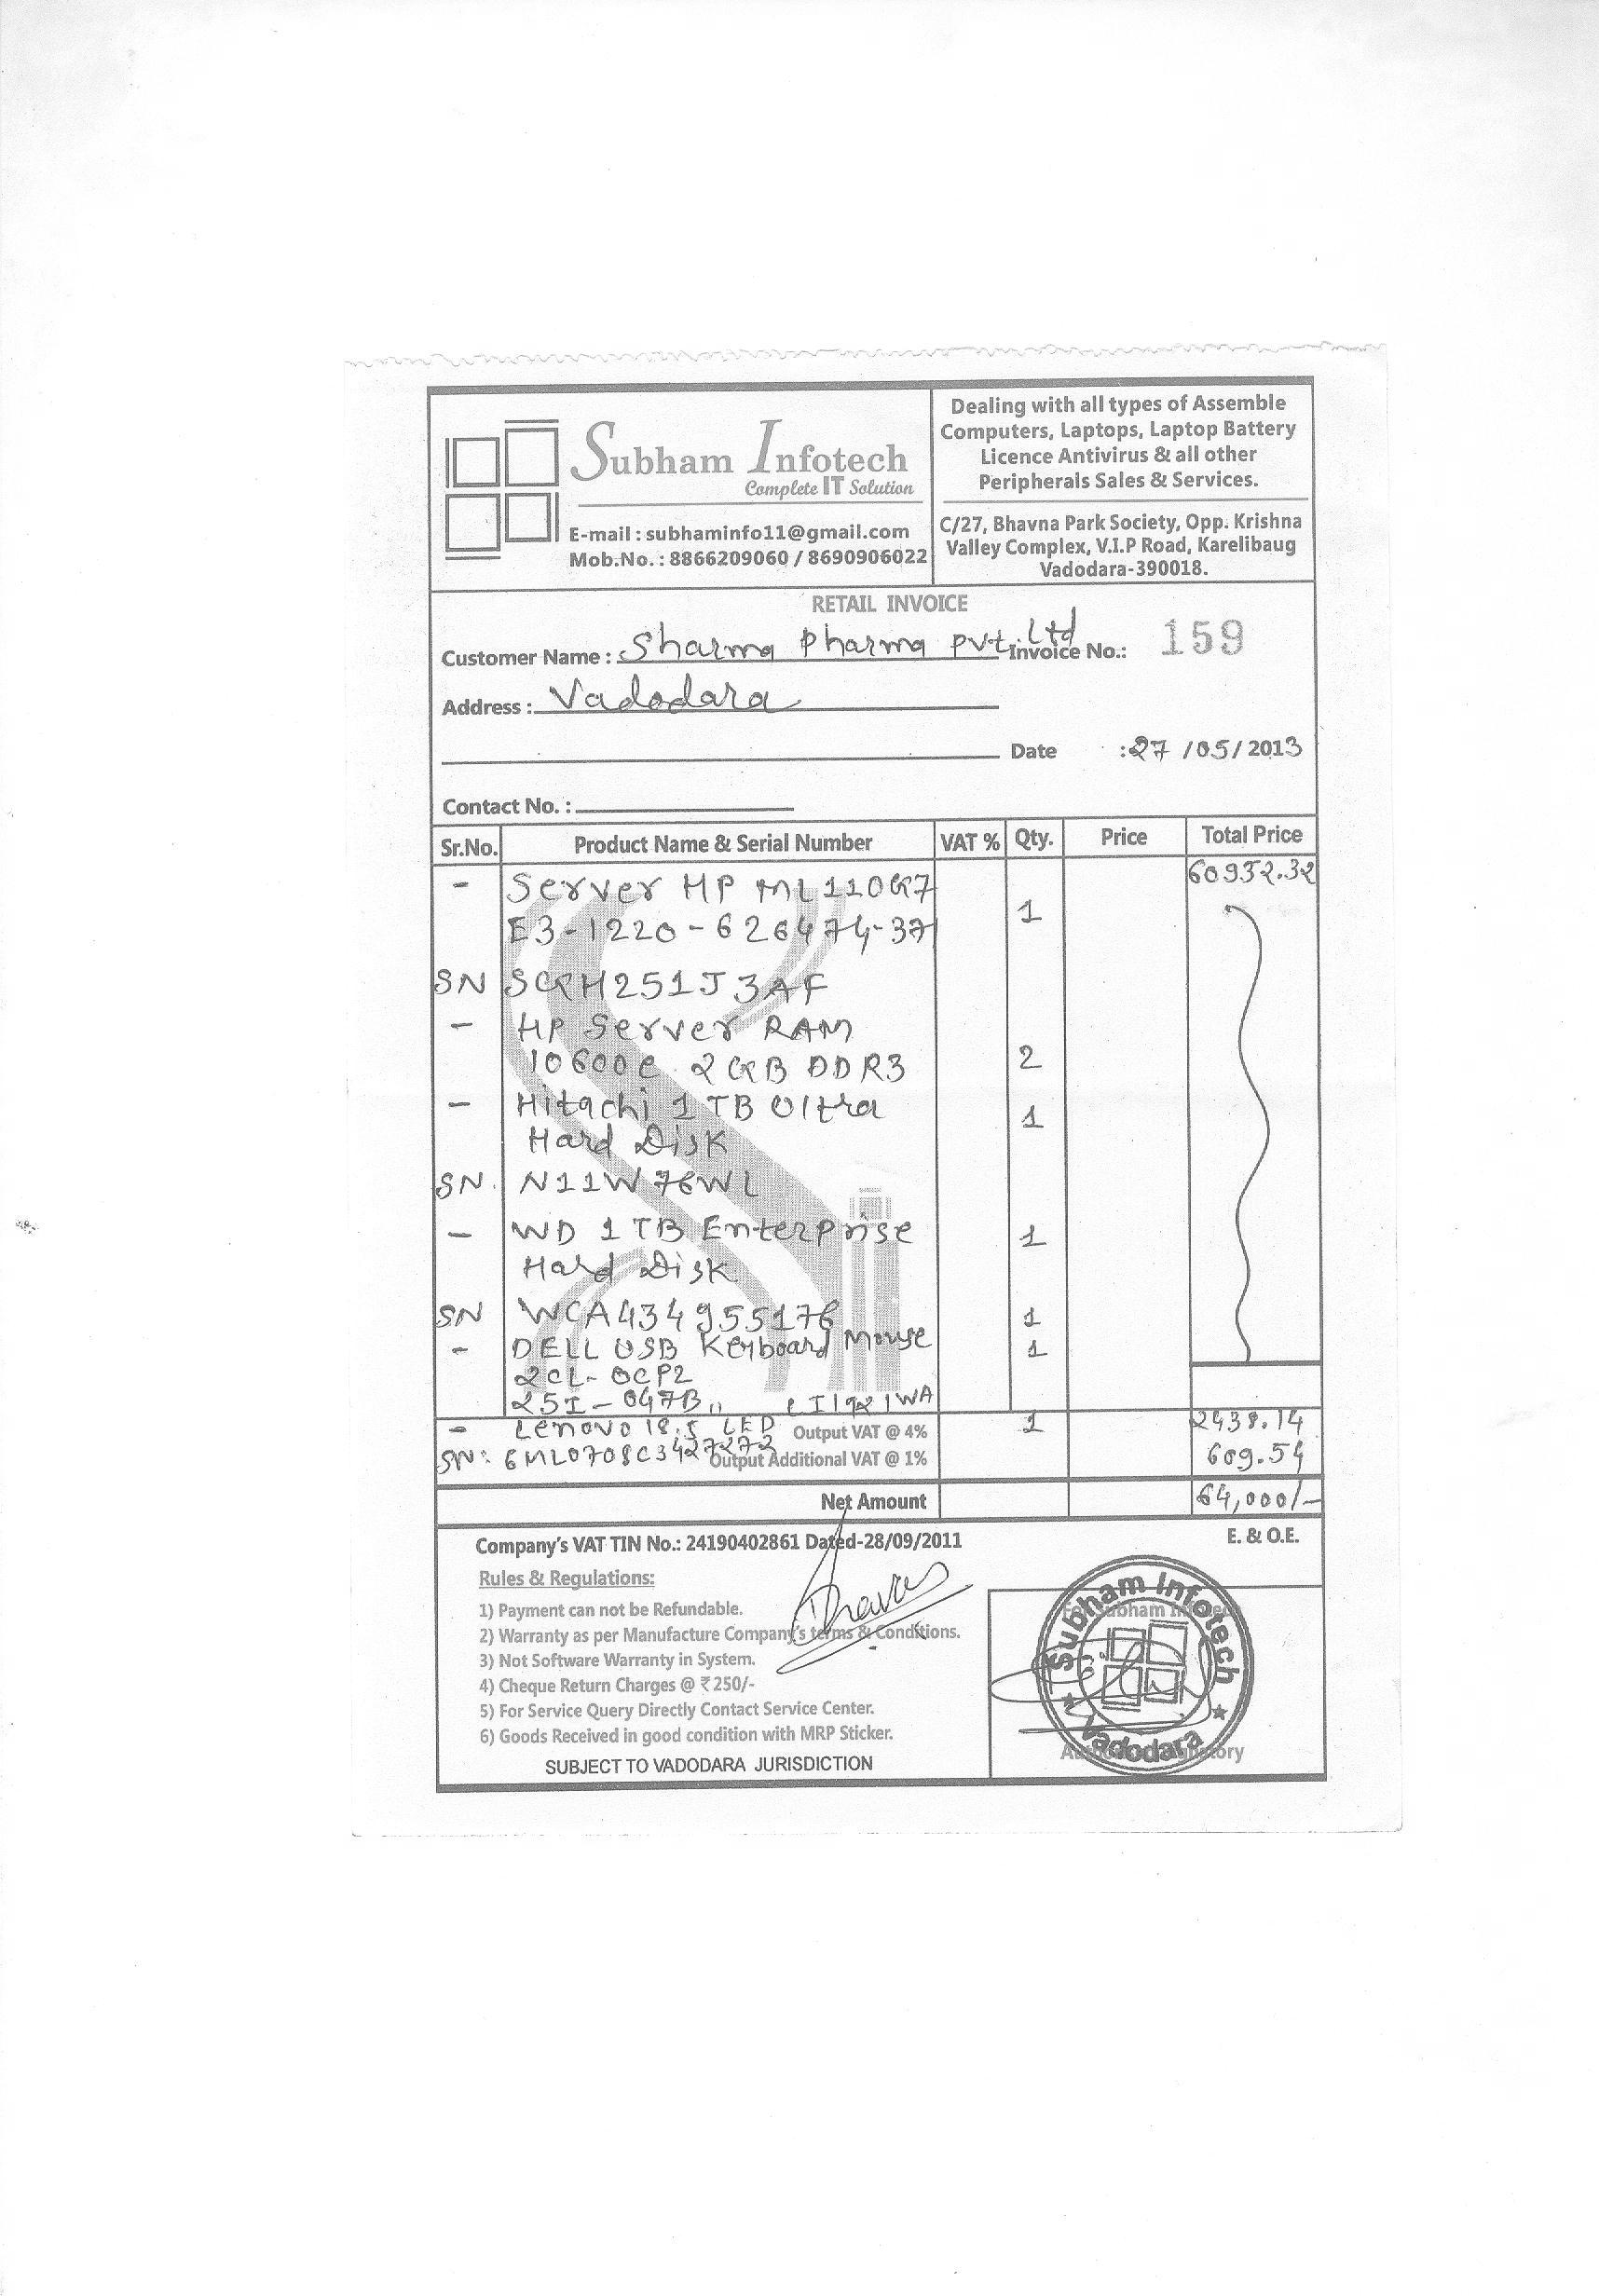 Subham Infotech
Complete IT Solution
E-mail : subhaminfo11@gmail.com
Mob.No. : 8866209060 / 8690906022
Dealing with all types of Assemble
Computers, Laptops, Laptop Battery
Licence Antivirus & all other
Peripherals Sales & Services.
C/27, Bhavna Park Society, Opp. Krishna
Valley Complex, V.I.P Road, Karelibaug
Vadodara-390018.
RETAIL INVOICE
Customer Name : Sharma Pharma Pvt. Ltd Invoice No.: 159
Address : Vadodara
Date : 27/05/2013
Contact No. :
Sr.No. Product Name & Serial Number VAT % Qty. Price Total Price
- Server HP ML110G7 60952.32
E3-1220-626474-37 1
SN SGH251J3AF
- HP Server RAM
10600e 2GB DDR3 2
- Hitachi 1 TB Ultra 1
Hard Disk
SN. N11W76WL
- WD 1 TB Enterprise 1
Hard Disk
SN WCA434955176 1
- DELL USB Keyboard Mouse 1
2CL-0CP2
25I-047B,,
- Lenovo 18.5 LED Output VAT @ 4% 1 2438.14
SN: 6ML0708C3427272 Output Additional VAT @ 1% 609.54
Net Amount 64,000/-
Company's VAT TIN No.: 24190402861 Dated-28/09/2011 E. & O.E.
Rules & Regulations:
1) Payment can not be Refundable.
2) Warranty as per Manufacture Company's terms & Conditions.
3) Not Software Warranty in System.
4) Cheque Return Charges @ ₹ 250/-
5) For Service Query Directly Contact Service Center.
6) Goods Received in good condition with MRP Sticker.
SUBJECT TO VADODARA JURISDICTION
For Subham Infotech
Subham Infotech
Vadodara
Authorised Signatory